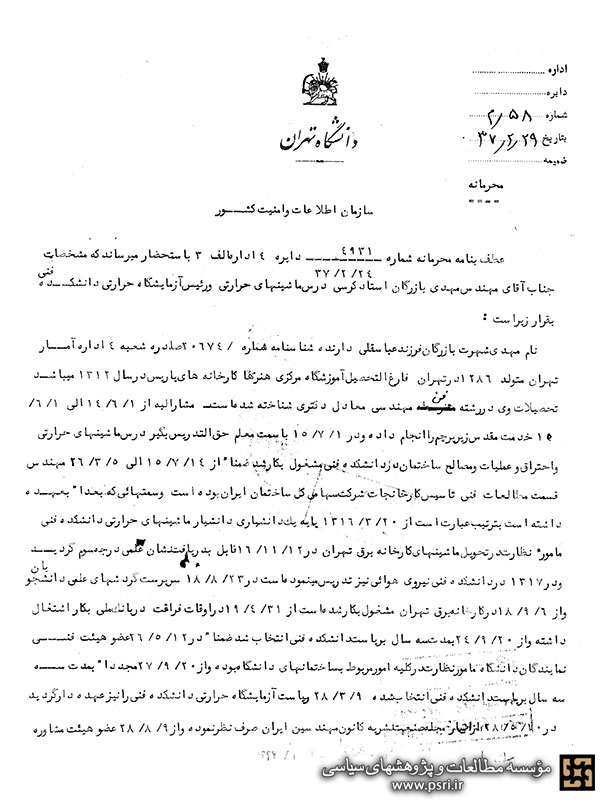 اداره ............................
دایره ............................
شماره ۵۸/م
بتاریخ ۳۷/۲/۲۹
ضمیمه
محرمانه
دانشگاه تهران
سازمان اطلاعات وامنیت کشـــور
عطف بنامه محرمانه شماره ۴۹۳۱ دایره ۴ اداره الف ۳ باستحضار میرساند که مشخصات
۳۷/۲/۲۴
جناب آقای مهندس مهدی بازرگان استاد کرسی درس ماشینهای حرارتی ورئیس آزمایشگاه حرارتی دانشکــده فنی
بقرار زیر است :
نام مهدی شهرت بازرگان فرزند عباسقلی دارنده شناسنامه شماره /۲۰۶۷۴ صادره شعبه ۴ اداره آمــار
تهران متولد ۱۲۸۶ در تهران فارغ التحصیل آموزشگاه مرکزی هنرها کارخانه های پاریس در سال ۱۳۱۲ میباشد
تحصیلات وی در رشته فوق مهندسی معادل دکتری شناخته شده است مشارالیه از ۱۴/۶/۱ الی ۶/۱/
۱۵ خدمت مقدس زیر پرچم را انجام داده ودر ۱۵/۷/۱ با سمت معلم حق التدریس بگیر درس ماشینهای حرارتی
واحتراق وعملیات ومصالح ساختمان در دانشکده فنی مشغول بکار شد ضمناً از ۱۵/۷/۱۴ الی ۲۶/۳/۵ مهندس
قسمت مطالعات فنی تاسیس کارخانجات شرکت سهامی کل ساختمان ایران بوده است وسمتهائی که بعداً بعهــده
داشته است بترتیب عبارت است از ۱۳۱۶/۳/۲۰ پایه یک دانشیاری دانشیار ماشینهای حرارتی دانشکده فنی
مامور نظارت در تحویل ماشینهای کارخانه برق تهران در ۱۶/۱۱/۱۲ نایل بدریافت نشان علمی درجه سوم گردیــد
ودر ۱۳۱۷ در دانشکده فنی نیروی هوائی نیز تدریس مینموده است در ۱۸/۸/۲۳ سرپرست گردشهای علمی دانشجویان
واز ۱۸/۹/۶ در کارخانه برق تهران مشغول بکار شده است از ۱۹/۴/۳۱ در اوقات فراغت در بانک ملی بکار اشتغال
داشته واز ۲۴/۹/۲۰ بمدت سه سال بریاست دانشکده فنی انتخاب شد ضمناً در ۲۶/۵/۱۲ عضو هیئت فنـــی
نمایندگان دانشگاه مامور نظارت در کلیه امور مربوط بساختمانهای دانشگاه بوده واز ۲۷/۹/۲۰ مجدداً بمدت ســه
سه سال بریاست دانشکده فنی انتخاب شده ۲۸/۳/۹ ریاست آزمایشگاه حرارتی دانشکده فنی را نیز عهده دار گردید
در ۲۸/۵/۱۰ از مجله صنعت نشریه کانون مهندسین ایران صرف نظر نموده واز ۲۸/۸/۹ عضو هیئت مشاوره
مؤسسه مطالعات و پژوهشهای سیاسی
www.psri.ir